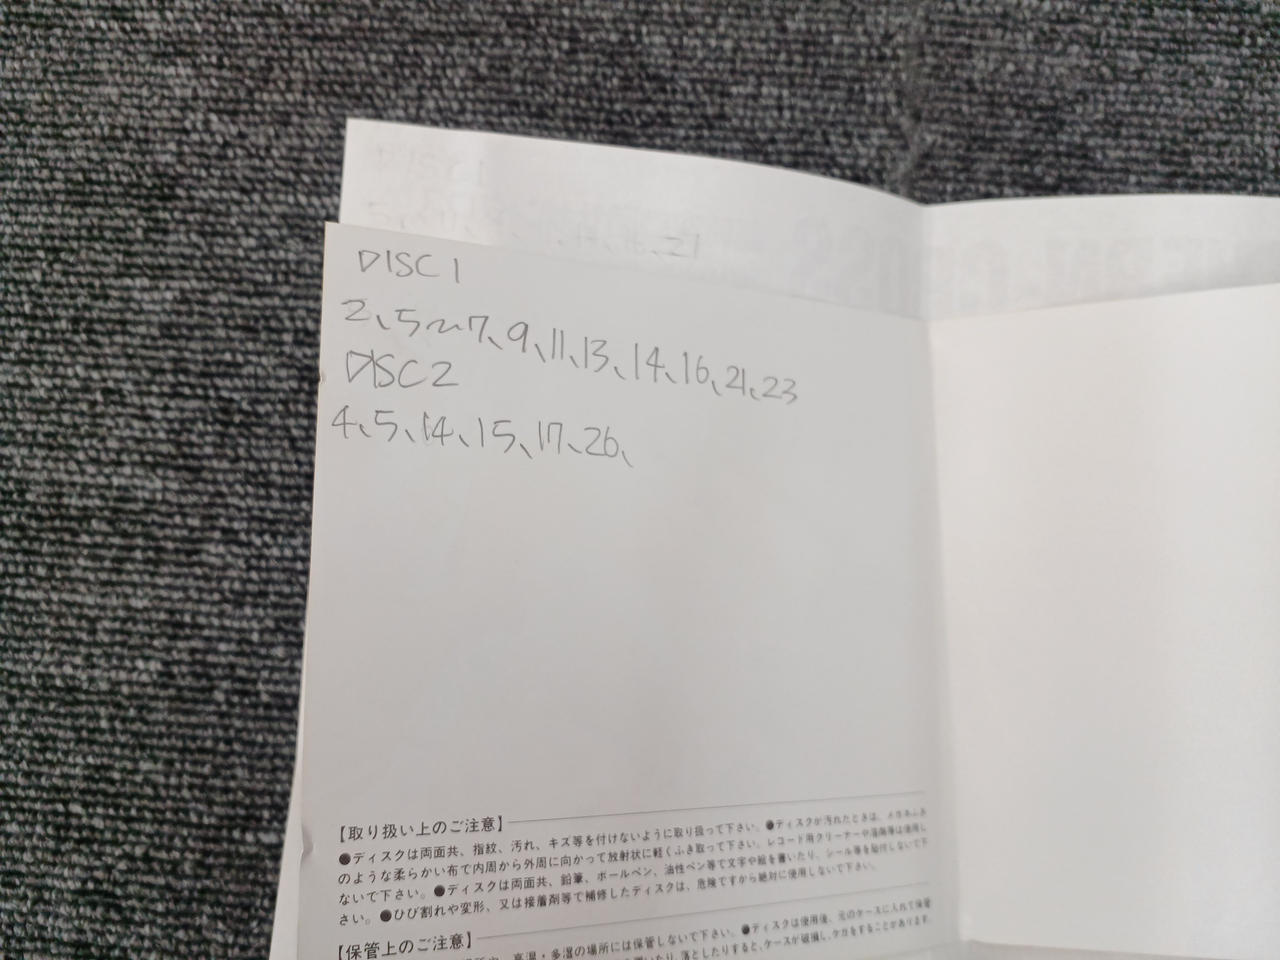 21
DISC1
2、5〜7、9、11、13、14、16、21、23
DISC2
4、5、14、15、17、26、
【取り扱い上のご注意】
●ディスクは両面共、指紋、汚れ、キズ等を付けないように取り扱って下さい。●ディスクが汚れたときは、メガネふき
のような柔らかい布で内周から外周に向かって放射状に軽くふき取って下さい。レコード用クリーナーや溶剤等は使用し
ないで下さい。●ディスクは両面共、鉛筆、ボールペン、油性ペン等で文字や絵を書いたり、シール等を貼付しないで下
さい。●ひび割れや変形、又は接着剤等で補修したディスクは、危険ですから絶対に使用しないで下さい。
【保管上のご注意】
高温・多湿の場所には保管しないで下さい。●ディスクは使用後、元のケースに入れて保管
落としたりすると、ケースが破損し、ケガをすることがあります。